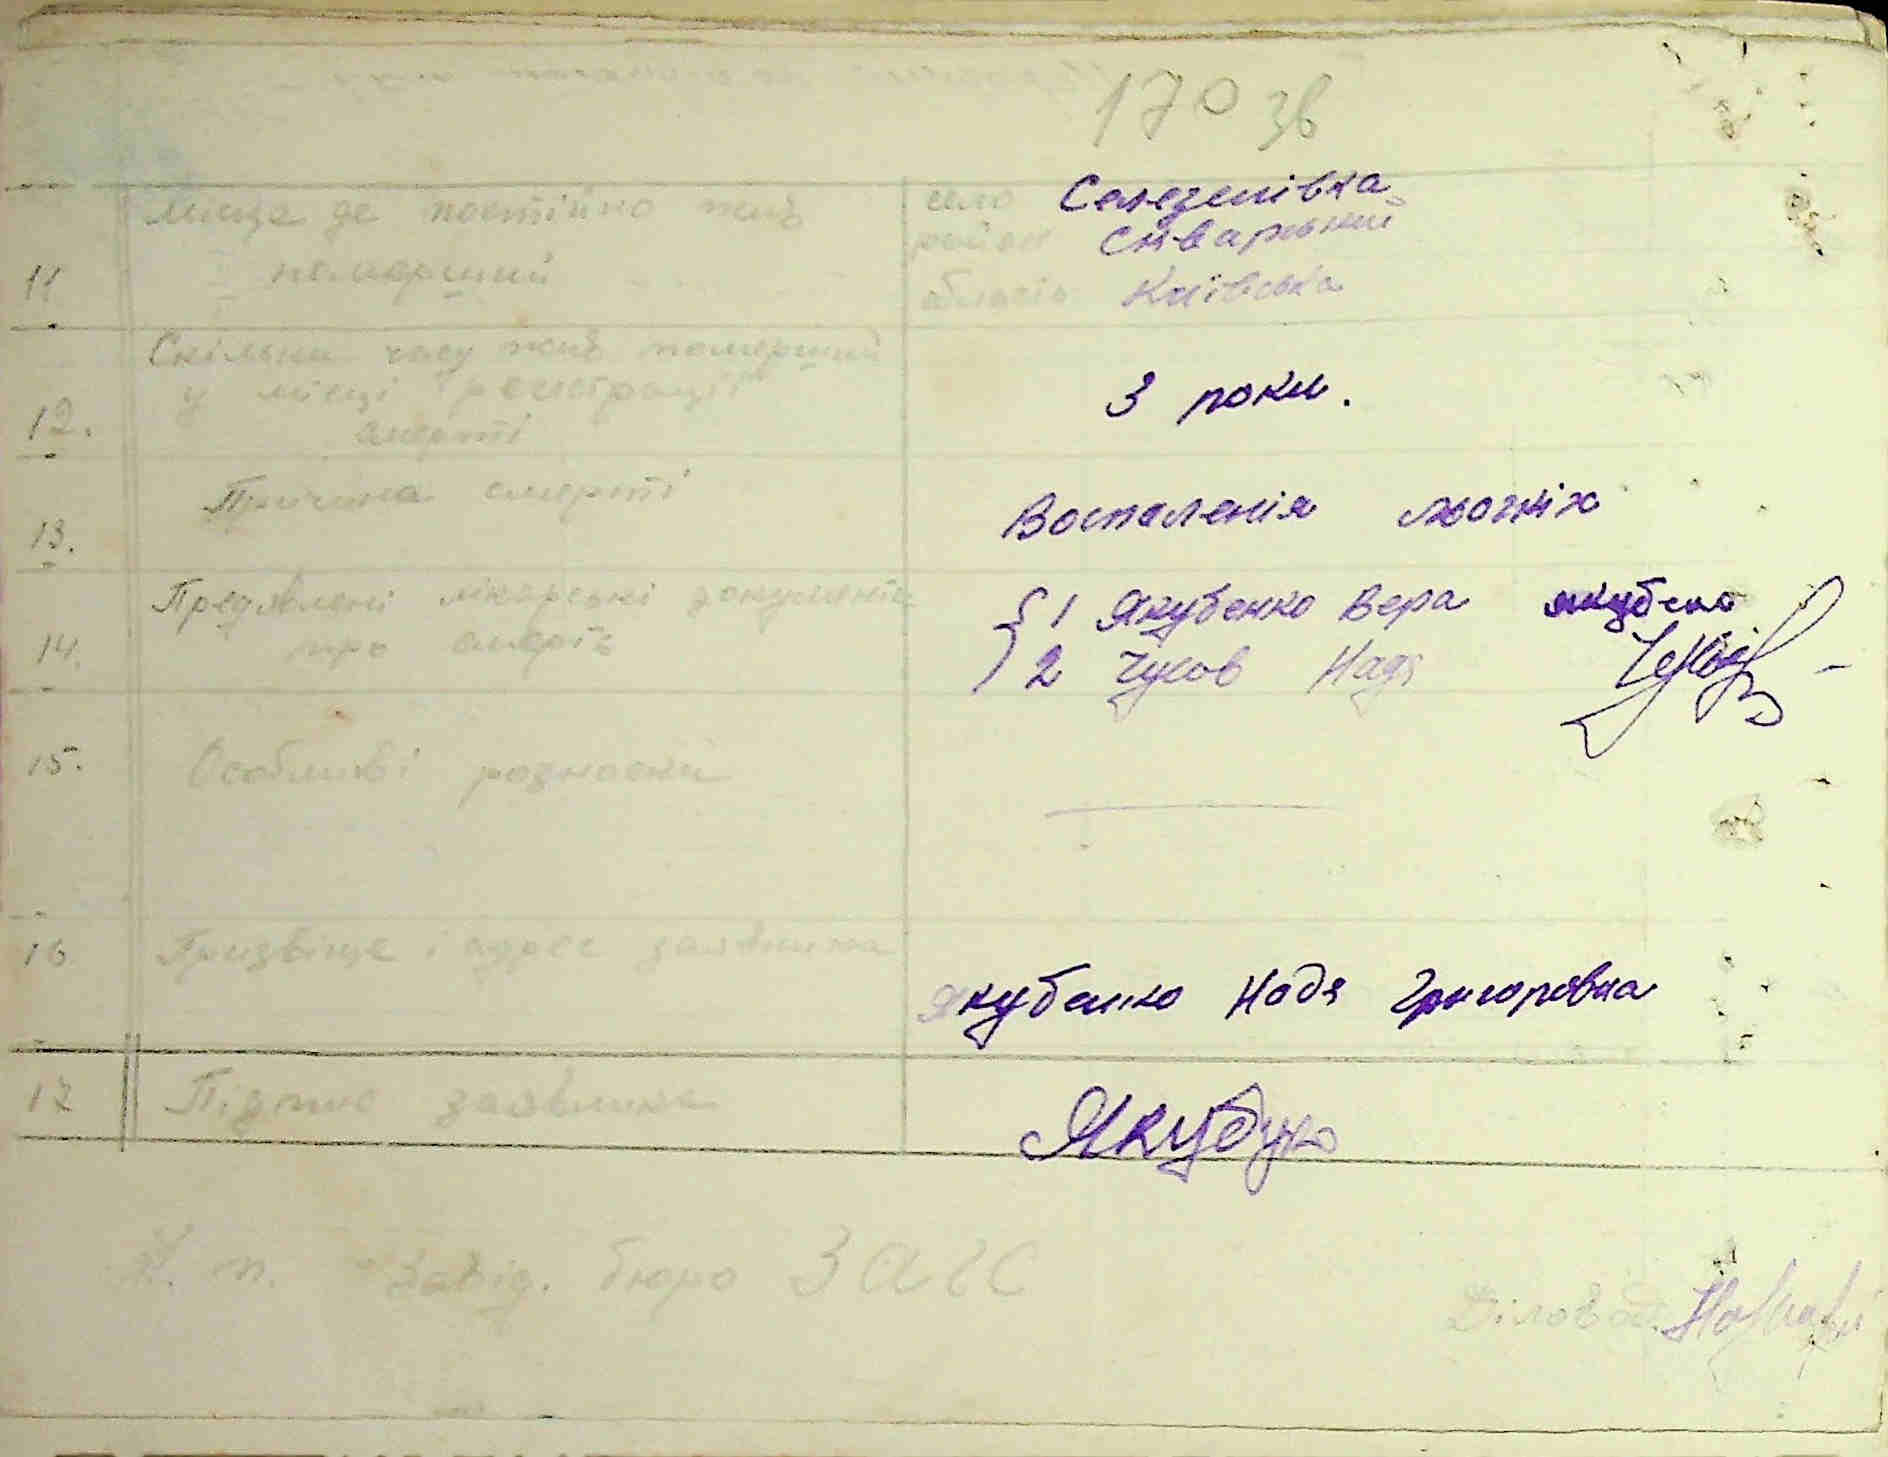 170 зв
11 Місце де постійно жив село Селезенівка
район Сквирський
помарший область Київська
Скільки часу жив померший
12. у місці реєстрації 3 роки.
смерті
13. Прічина смерті Воспаленія льогкіх
Предявлені лікарські документи { 1 Якубенко Вера якубенко
14. про смерть 2 Чусов Надя
15. Особливі розноски
16 Призвіще і адрес заявника Якубенко Надя Григоровна
17 Підпис заявника Якубенко
М. п. Завід. бюро ЗАГС
Діловод.